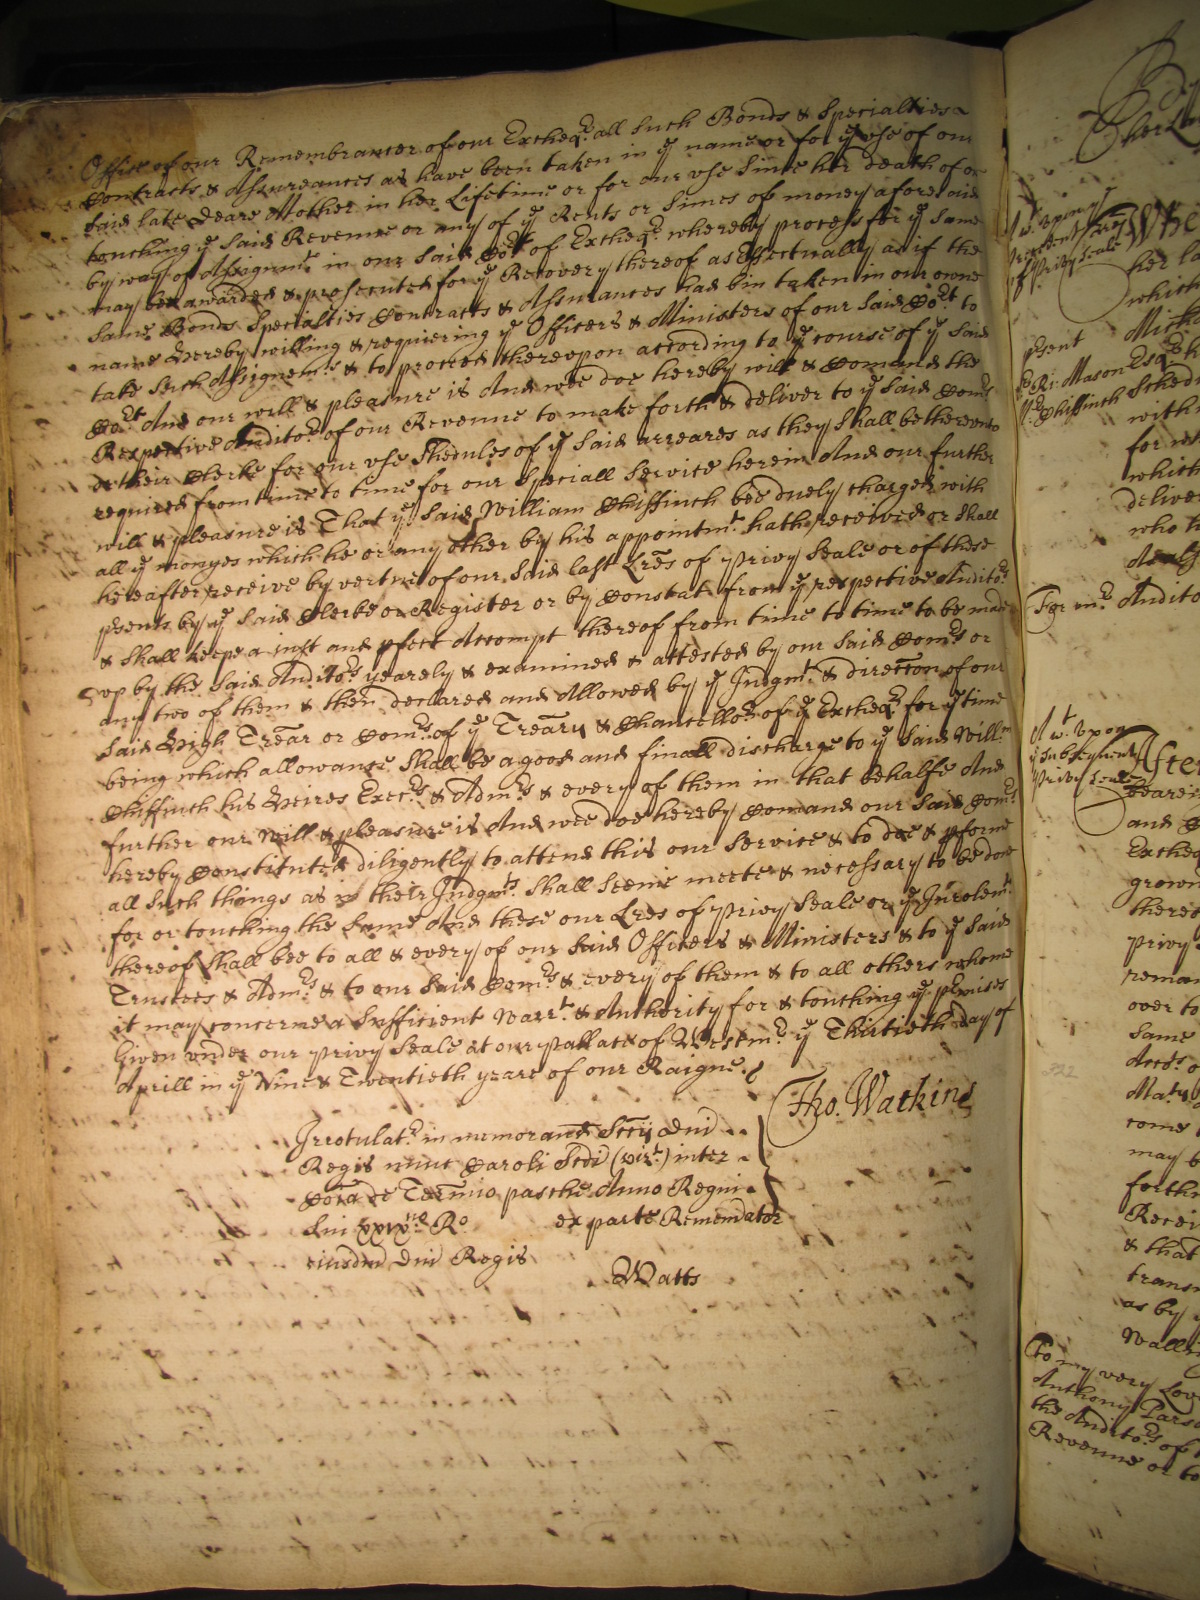 Office of our Remembrancer of our Excheq.r all such Bonds & Specialties
Contracts & Assureances as have been taken in ye name or for ye vse of our
said late Deare Mother in her Lifetime or for our vse since her death of or
touching ye said Revenue or any of ye Rents or Sumes of money aforesaid
by way of Assignmt in our said Cort of Excheqr whereby process for ye same
may bee awarded & prosecuted for ye Recovery thereof as effectually as if the
same Bonds Specialties Contracts & Assurances had bin taken in our owne
name hereby willing & requiering ye Officers & Ministers of our said Cort to
take such Assignemts & to proceed thereopon according to ye course of ye said
Cort And our will & pleasure is And wee doe hereby will & Comand the
Respective Auditors of our Revenue to make forth & deliver to ye said Comrs
or their Clerke for our vse Shedules of ye said arreares as they shall be therevnto
required from time to time for our speciall service herein And our further
will & pleasure is That ye said William Chiffinch bee duely charged with
all ye monyes which he or any other by his appointmt hath received or shall
hereafter receive by vertue of our said last Lres of Privy Seale or of these
psents by ye said Clerke or Register or by Constat from ye respective Auditors
& shall keepe a just and pfect Accompt thereof from time to time to be made
vp by the said Auditors yearely & examined & attested by our said Comrs or
any two of them & then declared and Allowed by ye Judgmt & direccon of our
said High Trear or Comrs of ye Treary & Chancellor of ye Excheqr for ye time
being which allowance shall be a good and finall discharge to ye said Willm
Chiffinch his Heires Execrs & Admrs & every of them in that behalfe And
further our will & pleasure is And wee doe hereby Comand our said Comrs
hereby Constituted diligently to attend this our service & to doe & pforme
all such things as in their Judgmts shall seeme meete & necessary to be done
for or touching the same And these our Lres of Privy Seale or ye Inrolemt
thereof shall bee to all & every of our said Officers & Ministers & to ye said
Trustees & Admrs & to our said Comrs & every of them & to all others whome
it may concerne a sufficient Warrt & Authority for & touching ye pmises
Given vnder our Privy Seale at our Pallace of Westmr ye Thirtieth day of
Aprill in ye Nine & Twentieth yeare of our Raigne.
Tho. Watkins
Irrotulatr in memorand Sccij Dni
Regis nunc Caroli Scdi (vizt) inter
Cora de Termio pasche Anno Regni
dni xxixno Ro ex parte Rememorator
eiusdm Dni Regis
Watts
A wt. vpon ye
Privy Seale
her la
which
psent
Mich
Ri: Mason Esqr
Chiffinch
Sched
with
for
which
delive
who
Audito
A wt. vpon
ye subsequent
Privy Seale
After
Deare
and
Excheq
grown
there
privy
reman
over to
same
Accts o
Maty
come
may b
forth
Recei
& that
trans
as by
Wall
To my very Lov
Anthony Parso
the Auditors of
Revenue or to